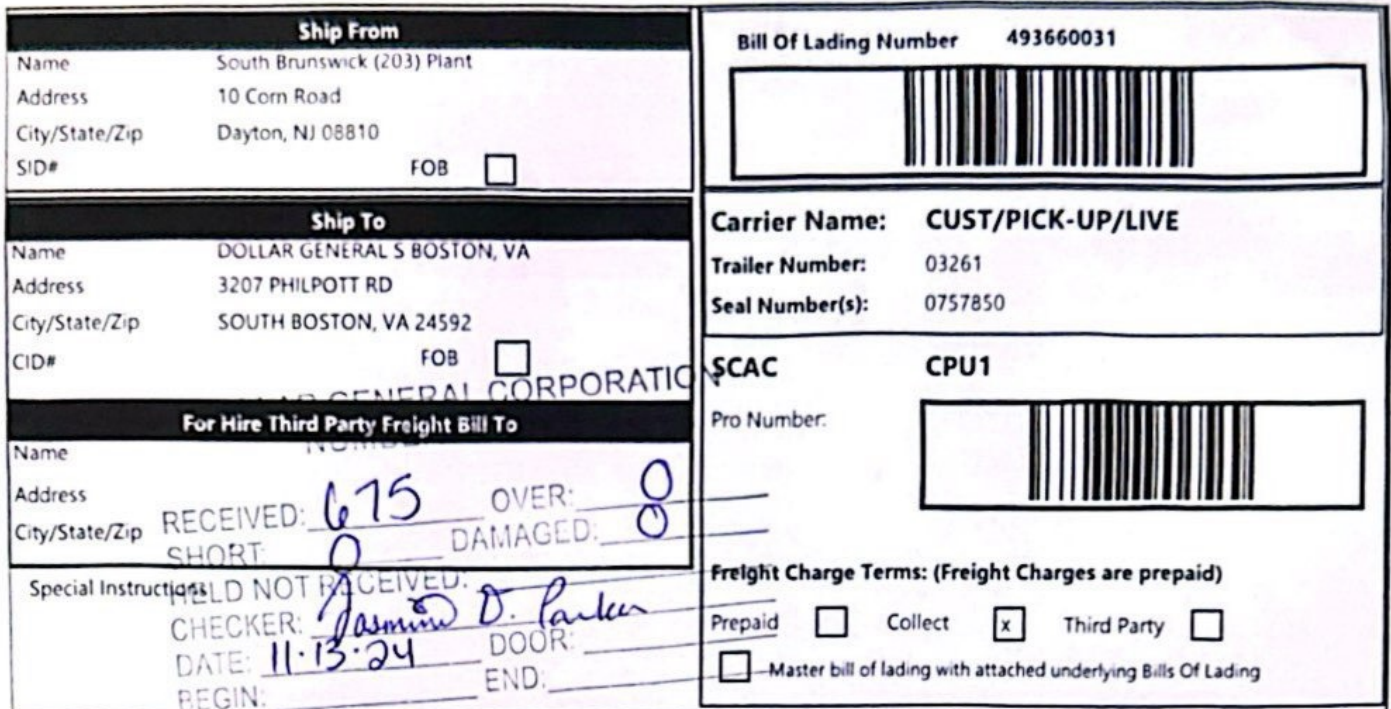 Ship From
Name South Brunswick (203) Plant
Address 10 Corn Road
City/State/Zip Dayton, NJ 08810
SID# FOB
Ship To
Name DOLLAR GENERAL S BOSTON, VA
Address 3207 PHILPOTT RD
City/State/Zip SOUTH BOSTON, VA 24592
CID# FOB
GENERAL CORPORATION
For Hire Third Party Freight Bill To
Name
Address
City/State/Zip
RECEIVED: 675 OVER: 0
SHORT: 0 DAMAGED: 0
Special Instructions
HELD NOT RECEIVED:
CHECKER: Jasmine D. Parker
DATE: 11·13·24 DOOR:
BEGIN: END:
Bill Of Lading Number 493660031
Carrier Name: CUST/PICK-UP/LIVE
Trailer Number: 03261
Seal Number(s): 0757850
SCAC CPU1
Pro Number:
Freight Charge Terms: (Freight Charges are prepaid)
Prepaid Collect x Third Party
Master bill of lading with attached underlying Bills Of Lading